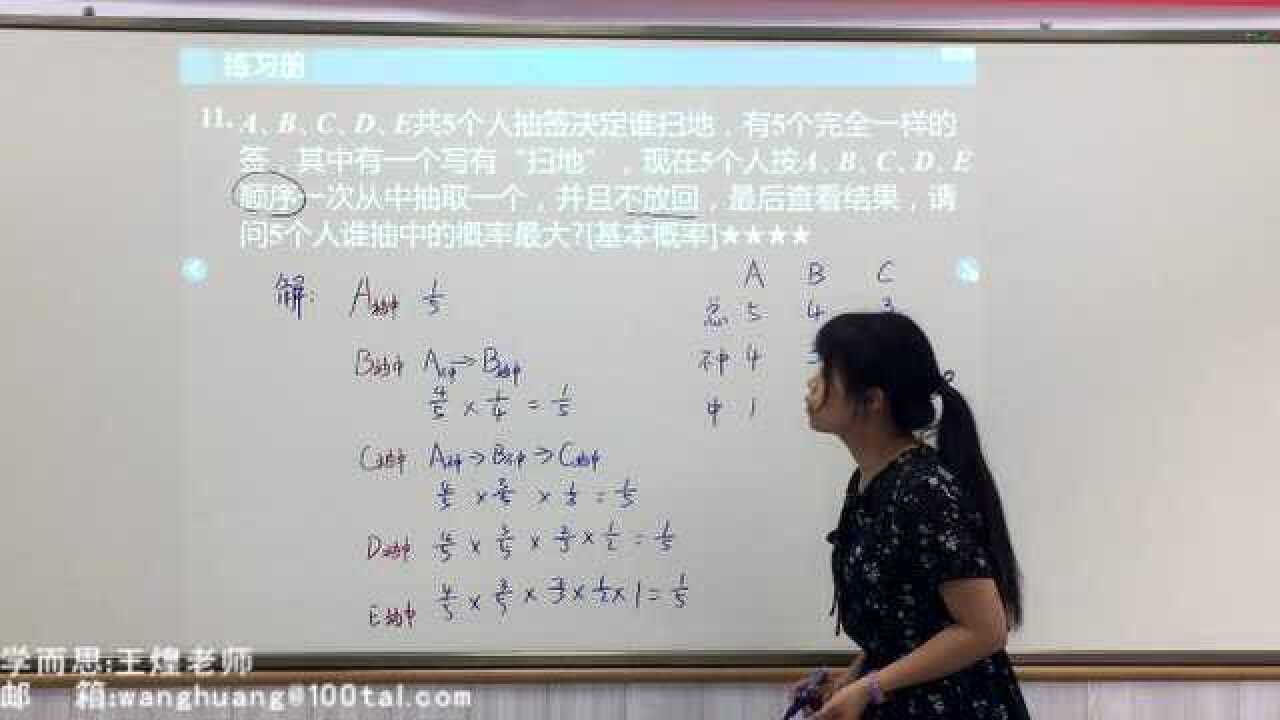 练习册
11. A、B、C、D、E共5个人抽签决定谁扫地，有5个完全一样的
签，其中有一个写有“扫地”，现在5个人按A、B、C、D、E
顺序一次从中抽取一个，并且不放回，最后查看结果，请
问5个人谁抽中的概率最大?[基本概率]★★★★
解: A抽中 1/5
B抽中 A不中→B抽中
4/5 × 1/4 = 1/5
C抽中 A不中→B不中→C抽中
= 1/5
D抽中 × 1/2 = 1/5
E抽中 × 1/2 × 1 = 1/5
A B C
总 5 4 3
不中 4
中 1
学而思:王煌老师
邮 箱:wanghuang@100tal.com